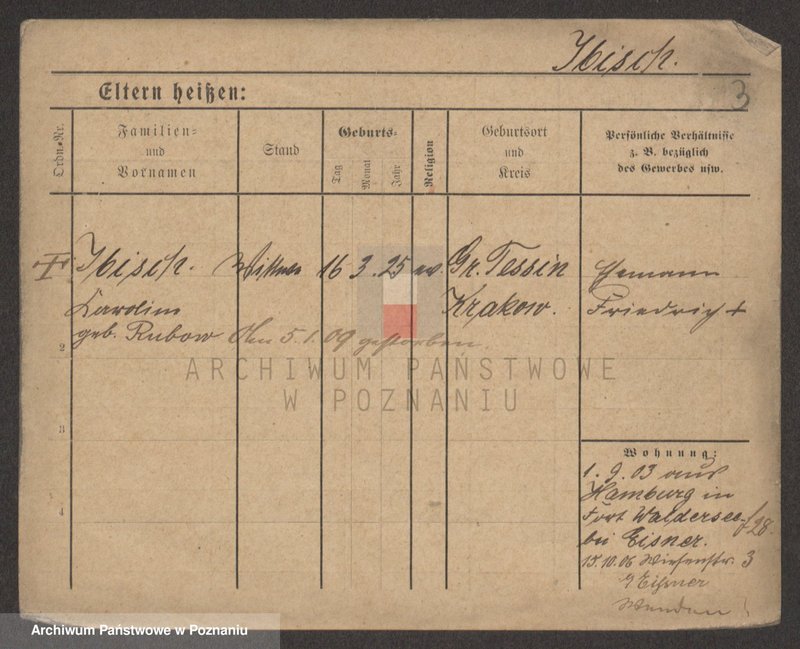 Ibisch.
3
Eltern heißen:
Ordn.-Nr.
Familien-
und
Vornamen
Stand
Geburts-
Tag
Monat
Jahr
Religion
Geburtsort
und
Kreis
Persönliche Verhältnisse
z. B. bezüglich
des Gewerbes usw.
Ibisch. Wittwe 16 3. 25 ev. Gr. Tessin Ehemann
Karoline Krakow. Friedrich +
geb. Rubow Am 5.1.09 gestorben.
2
3
4
ARCHIWUM PAŃSTWOWE
W POZNANIU
Wohnung:
1. 9. 03 aus
Hamburg in
Fort Waldersee
bei Eisner.
15.10.06 Wiesenstr. 3
Eisner
Wenden!
Archiwum Państwowe w Poznaniu